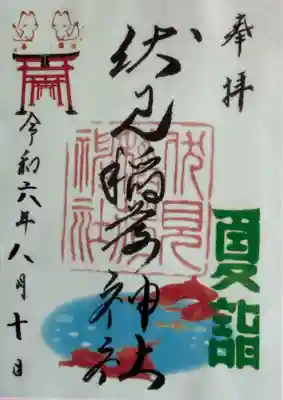 奉拝
伏見稲荷神社
令和六年八月十日
夏詣
伏見
稲荷
神社